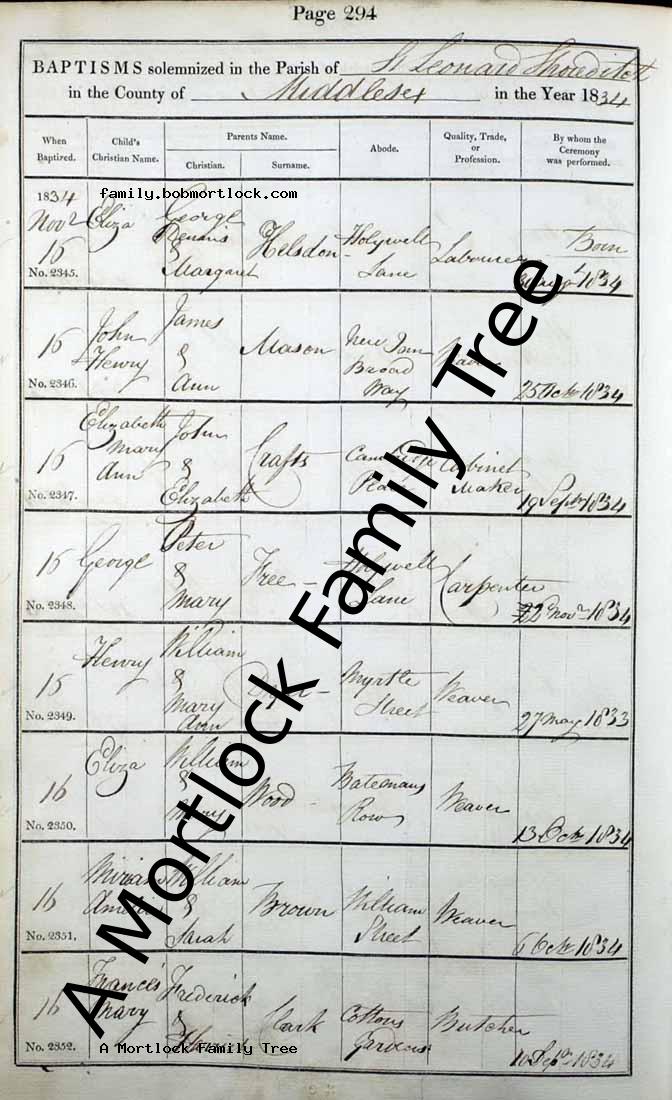 Page 294
BAPTISMS solemnized in the Parish of St Leonard Shoreditch
in the County of Middlesex in the Year 1834
When Baptized.
Child's Christian Name.
Parents Name.
Christian.
Surname.
Abode.
Quality, Trade, or Profession.
By whom the Ceremony was performed.
1834
family.bobmortlock.com
Novr
16
No. 2345.
Eliza
George
Dennis
&
Margaret
Helsdon
Holywell
Lane
Labourer
Born
1834
16
No. 2346.
John
Henry
James
&
Ann
Mason
New Inn
Broad
Way
25 Octr 1834
16
No. 2347.
Elizabeth
Mary
Ann
John
&
Elizabeth
Crafts
Cabinet
Maker
19 Septr 1834
16
No. 2348.
George
Peter
&
Mary
Free
Holywell
Lane
Carpenter
Novr 1834
16
No. 2349.
Henry
William
&
Mary
Ann
Myrtle
Street
Weaver
27 May 1833
16
No. 2350.
Eliza
William
&
Mary
Wood
Batemans
Row
Weaver
13 Octr 1834
16
No. 2351.
Miriam
William
&
Sarah
Brown
William
Street
Weaver
6 Octr 1834
16
No. 2352.
Frances
Mary
Frederick
&
Clark
Cottons
Gardens
Butcher
10 Sepr 1834
A Mortlock Family Tree
A Mortlock Family Tree